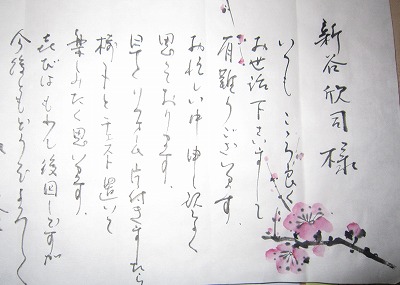 新谷欣司様
いつも こころ良く
お世話下さいまして
有難うございます。
お忙しい中 申し訳なく
思っております。
早くリフォーム片付きましたら
椅子とチェスト置いて
楽みたく思います。
喜びはもれて後回しですが
今後ともどうぞよろしく